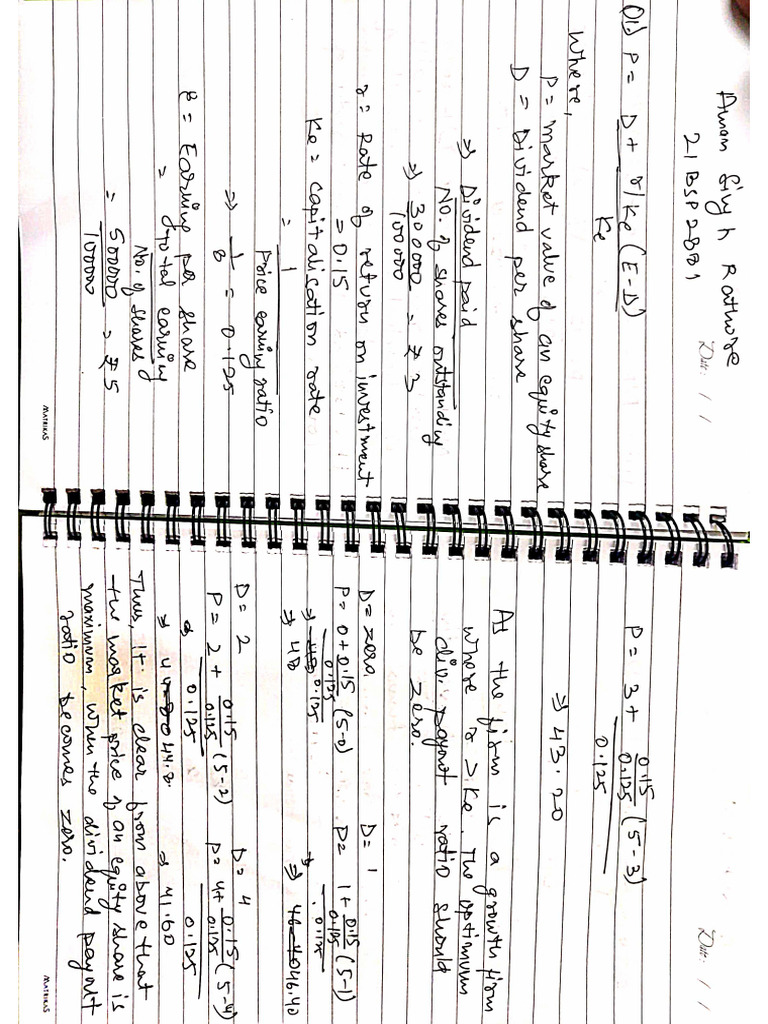 Aman Singh Rathore
21BSP2881
Date: / /
Q1) P = D + r/Ke (E-D)
Ke
Where,
P = market value of an equity share
D = Dividend per share
⇒ Dividend paid
No. of shares outstanding
⇒ 300000 = ₹ 3
100000
r = Rate of return on investment
= 0.15
Ke = capitalisation rate
= 1
Price earning ratio
⇒ 1 = 0.125
8
E = Earning per share
= Total earning
No. of shares
= 500000 = ₹ 5
100000
MATRIKAS
Date: / /
P = 3 + 0.15/0.125 (5-3)
0.125
⇒ 43.20
As the firm is a growth firm
where r > Ke. The optimum
div. payout ratio should
be zero.
D = zero D = 1
P = 0 + 0.15/0.125 (5-0) P = 1 + 0.15/0.125 (5-1)
0.125 0.125
⇒ 48 ⇒ 46.40
D = 2 D = 4
P = 2 + 0.15/0.125 (5-2) P = 4 + 0.15/0.125 (5-4)
0.125 0.125
⇒ 44.8 ⇒ 41.60
Thus, it is clear from above that
the market price of an equity share is
maximum, when the dividend payout
ratio becomes zero.
MATRIKAS